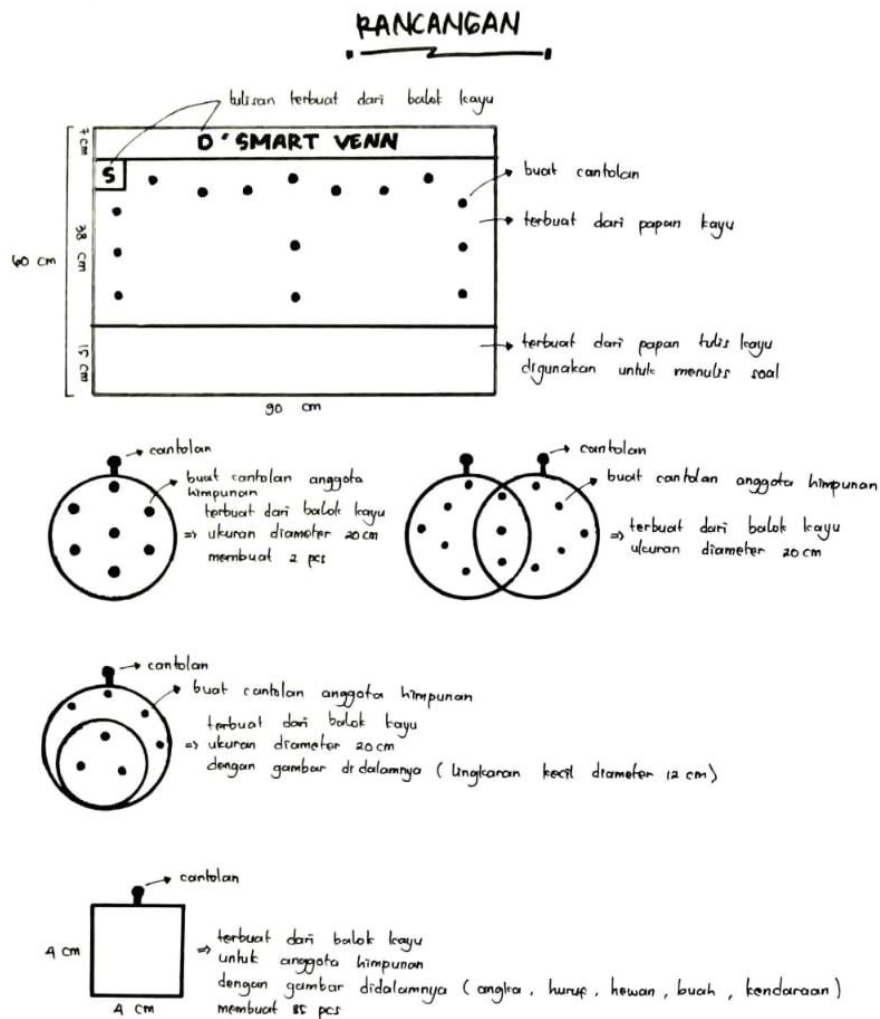 RANCANGAN
tulisan terbuat dari balok kayu
7 cm
D'SMART VENN
S
buat cantolan
terbuat dari papan kayu
38 cm
60 cm
15 cm
terbuat dari papan tulis kayu
digunakan untuk menulis soal
90 cm
cantolan
buat cantolan anggota
himpunan
terbuat dari balok kayu
⇒ ukuran diameter 20 cm
membuat 2 pcs
cantolan
buat cantolan anggota himpunan
⇒ terbuat dari balok kayu
ukuran diameter 20 cm
cantolan
buat cantolan anggota himpunan
terbuat dari balok kayu
⇒ ukuran diameter 20 cm
dengan gambar didalamnya (lingkaran kecil diameter 12 cm)
cantolan
4 cm
⇒ terbuat dari balok kayu
untuk anggota himpunan
dengan gambar didalamnya (angka, huruf, hewan, buah, kendaraan)
membuat pcs
4 cm